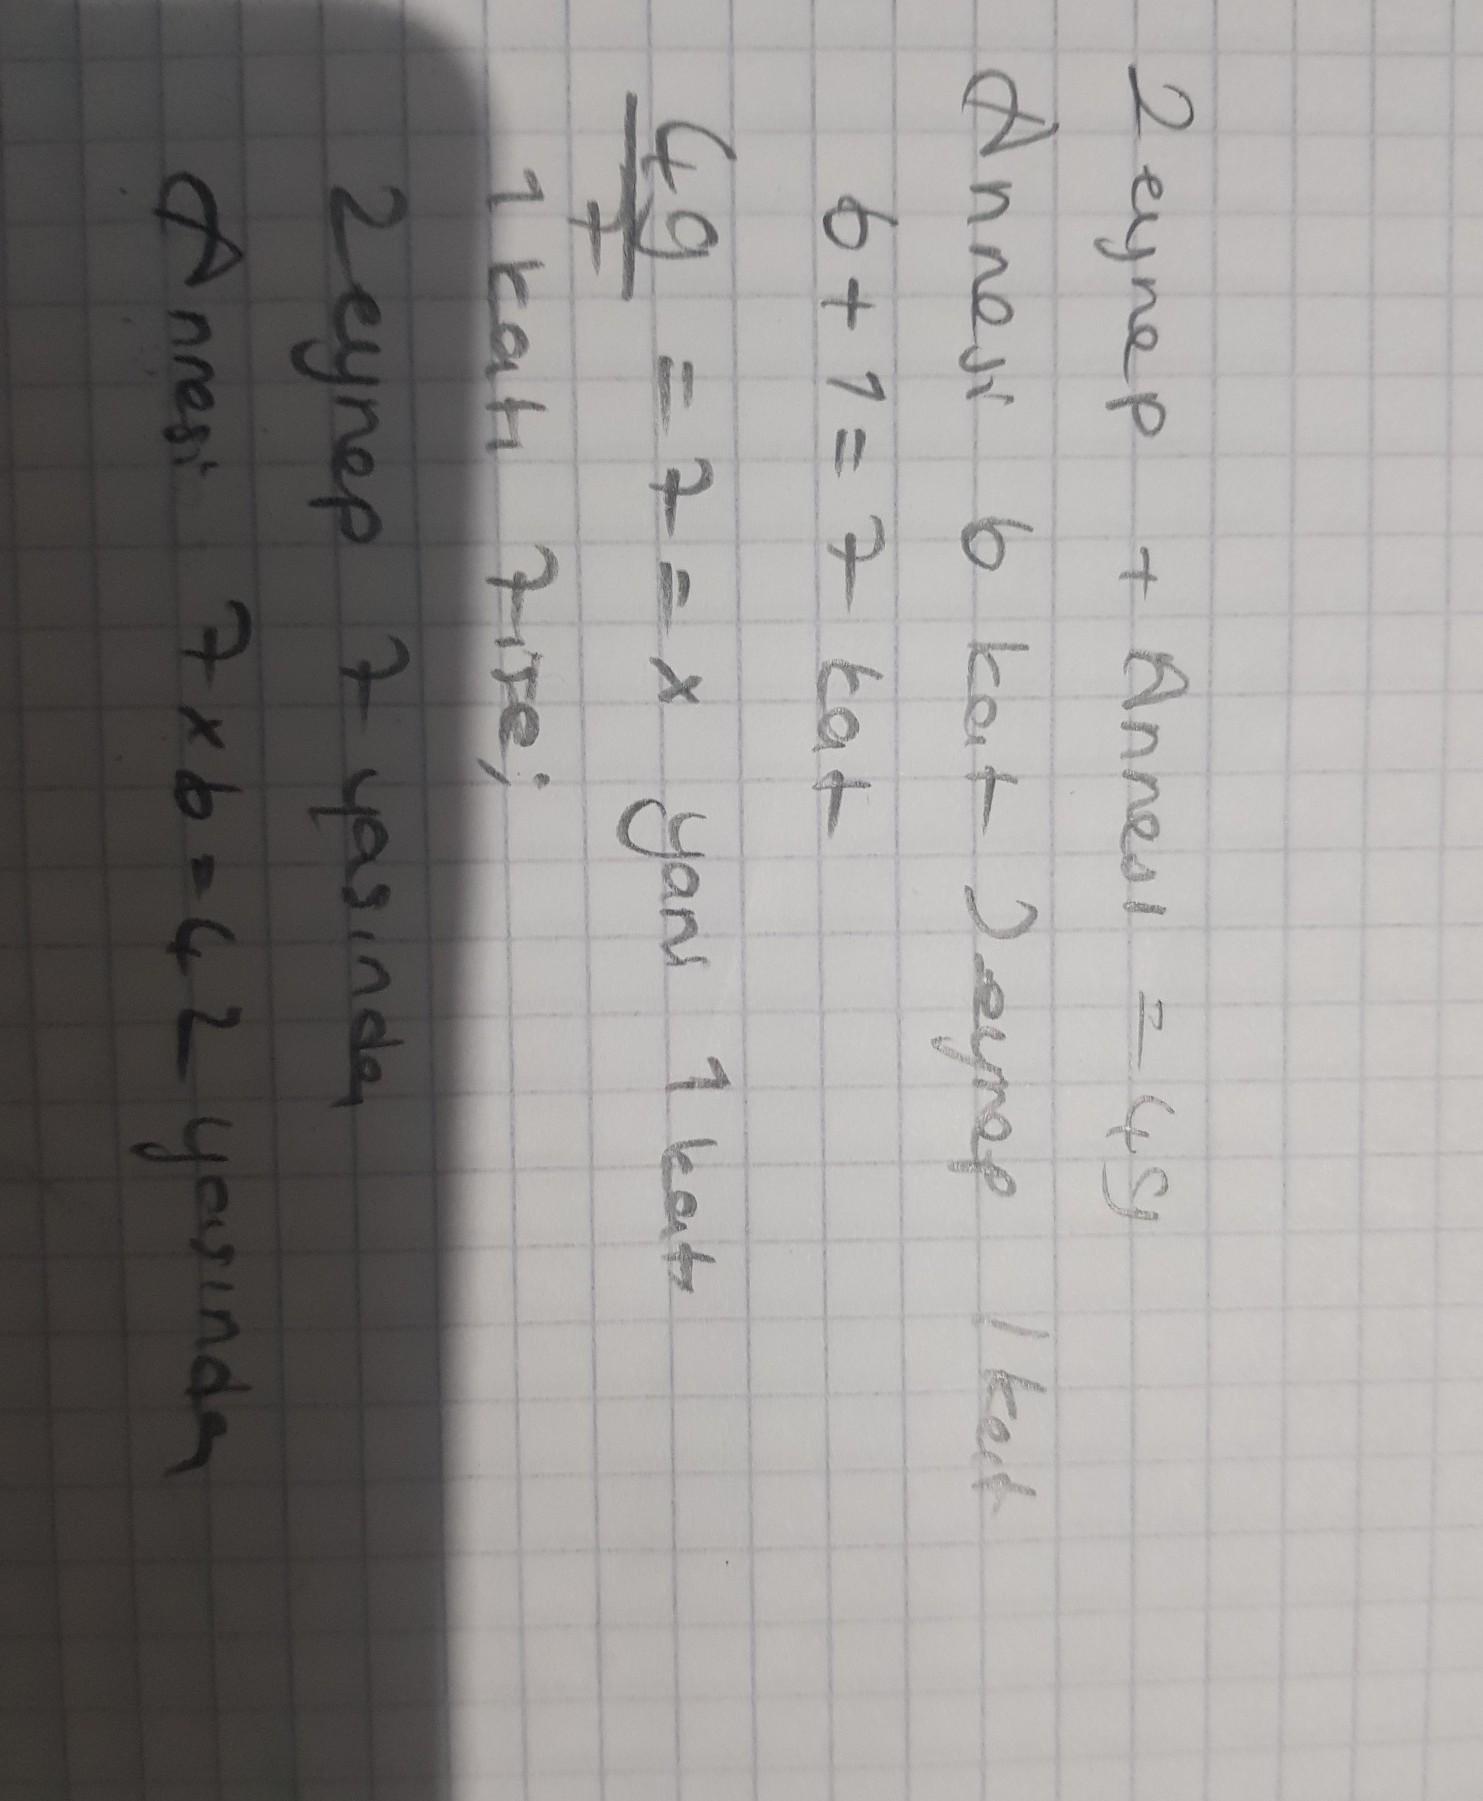 Zeynep + Annesi = 49
Annesi 6 kat Zeynep 1 kat
6 + 1 = 7 kat
49/7 = 7 = x yani 1 katı
1 katı 7 ise;
Zeynep 7 yasında
Annesi 7 x 6 = 42 yasında